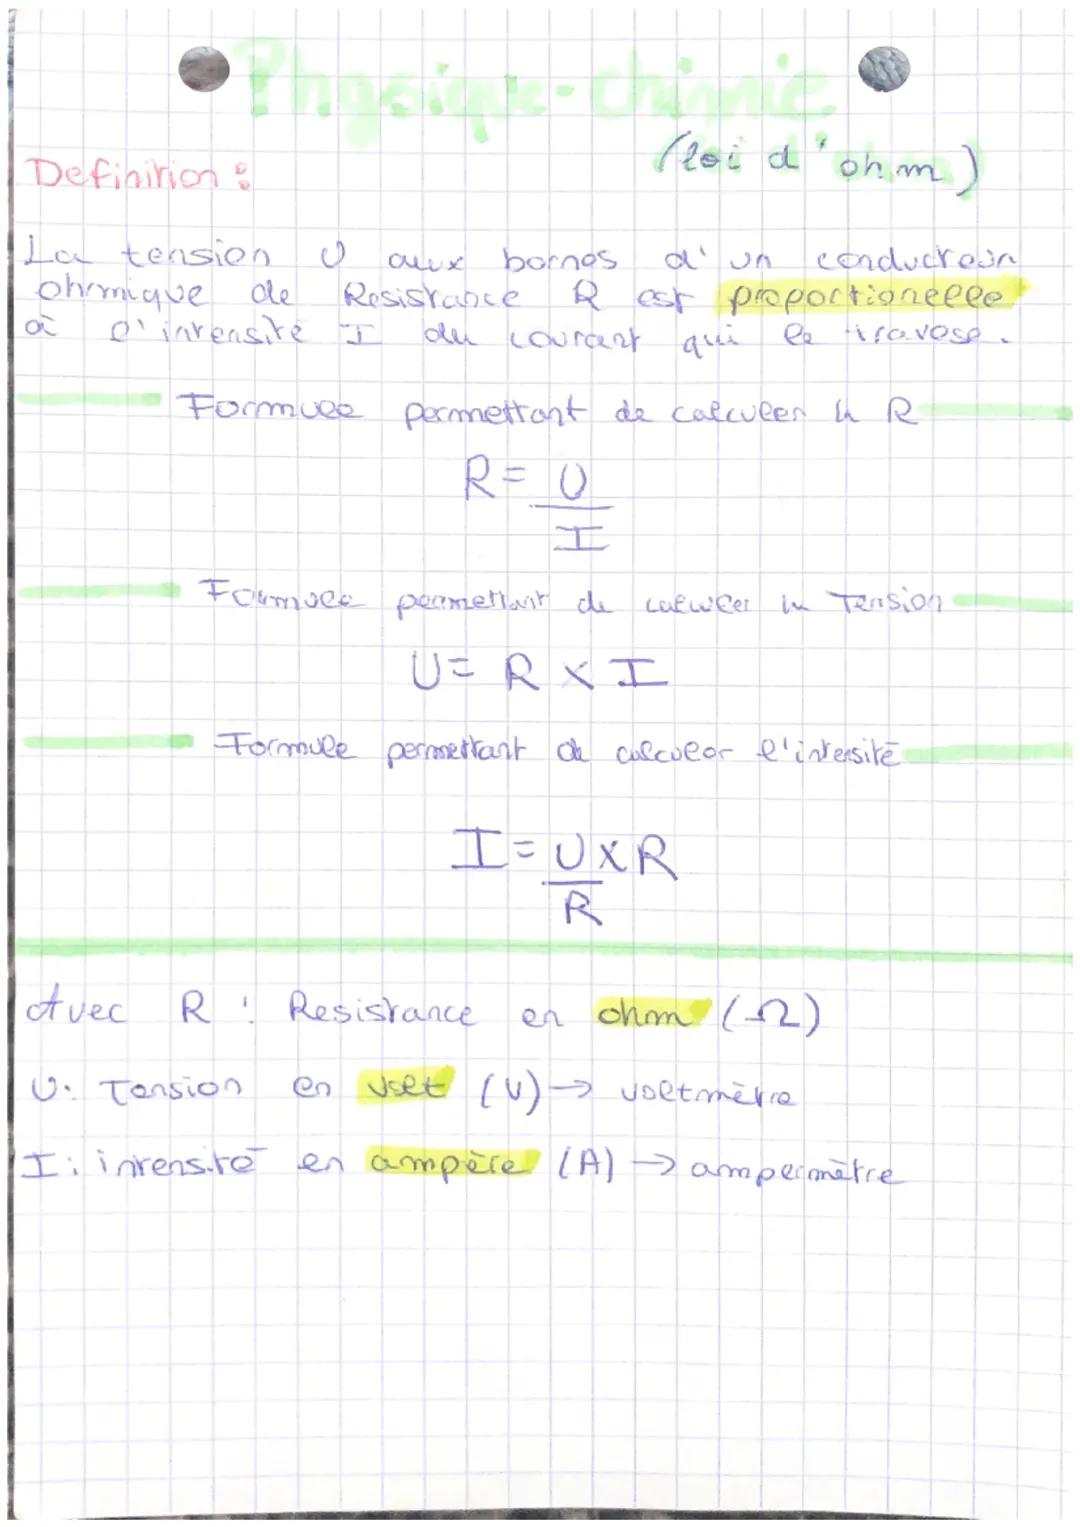 Physique-chimie
(loi d'ohm)
Definition :
La tension U aux bornes d'un conducteur
ohmique de Resistance R est proportionelle
à l'intensité I du courant qui le travese.
Formule permettant de calculer la R
R = U
I
Formule permettant de calculer la Tension
U = R × I
Formule permettant de calculer l'intesité
I = U × R
R
Avec R : Resistance en ohm (Ω)
U : Tension en volt (V) → voltmètre
I : intensité en ampère (A) → ampermètre